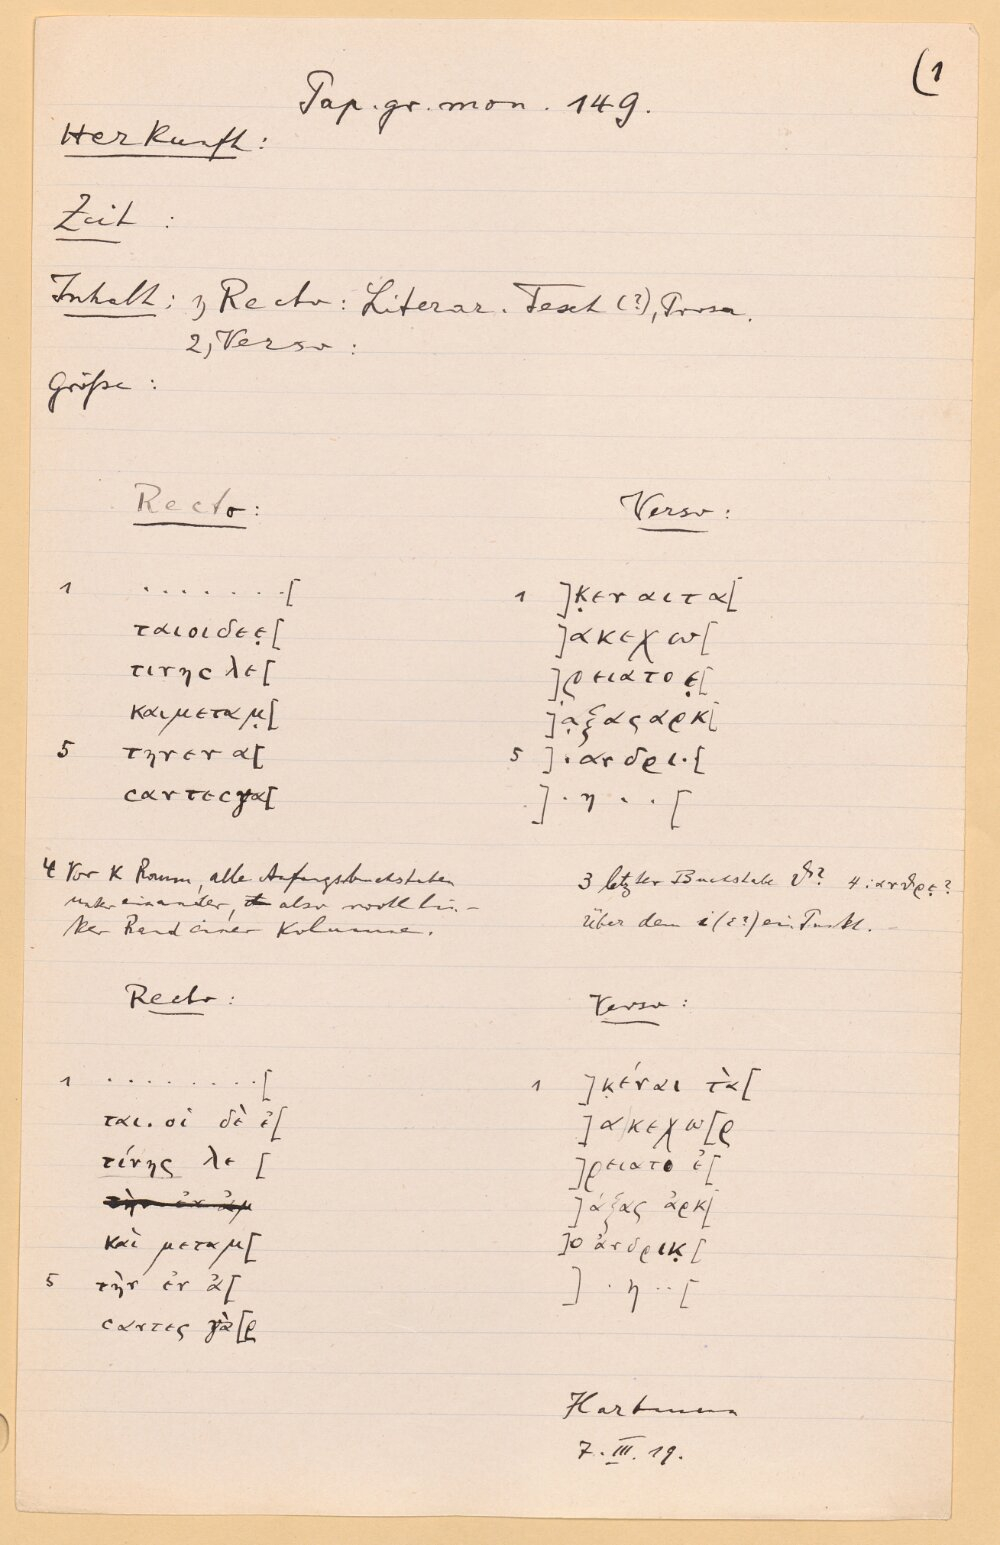 (1
Pap. gr. mon. 149.
Herkunft:
Zeit :
Inhalt: 1, Recto: Literar. Text (?), Prosa.
2, Verso :
Größe :
Recto:
1 . . . . . . . [
ταιοιδεε̣[
τινης λε[
καιμεταμ̣[
5 την εν α[
σαντεσγα[
4 Vor K Raum, alle Anfangsbuchstaben
untereinander, also wohl lin-
ker Rand einer Kolumne.
Verso :
1 ]κ̣εναιτα[
]ακεχω[
]ρ̣ειατοε̣[
]α̣ξαςαρκ[
5 ] . ανδρι . [
] . η . . [
3 letzter Buchstabe ϑ? 4 : ανϑρε̣?
Über dem ι (ε?) ein Punkt.
Recto :
1 . . . . . . . . [
ται. οἱ δὲ ἐ[
τίνης λε [
τὴν ἐν ἀμ
καὶ μεταμ[
5 τὴν ἐν ἀ[
σαντες γὰ[ρ
Verso :
1 ]κ̣έναι τὰ[
]α κεχω[ρ
]ρειατο ἐ[
]άξας ἀρκ[
]ο ἀνδρικ̣[
] . η . . [
Hartmann
7. III. 19.